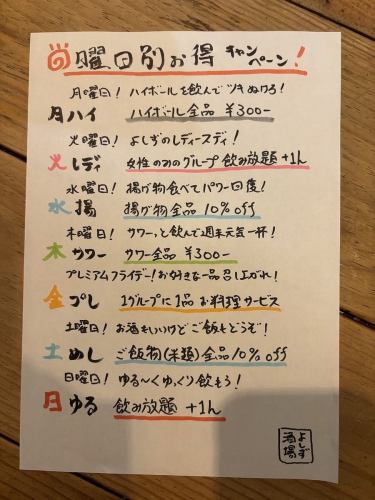 曜日別お得キャンペーン!
月曜日! ハイボールを飲んでツキぬけろ!
月ハイ ハイボール全品 ¥300-
火曜日! よしずのレディースディ!
火レディ 女性のみのグループ 飲み放題 +1h
水曜日! 揚げ物食べてパワー回復!
水揚 揚げ物全品 10% off
木曜日! サワーっと飲んで週末元気一杯!
木サワー サワー全品 ¥300-
プレミアムフライデー! お好きな一品召し上がれ!
金プレ 1グループに1品 お料理サービス
土曜日! お酒もいいけどご飯もどうぞ!
土めし ご飯物(米類)全品10% off
日曜日! ゆる〜くゆっくり飲もう!
日ゆる 飲み放題 +1h
よしず
酒場